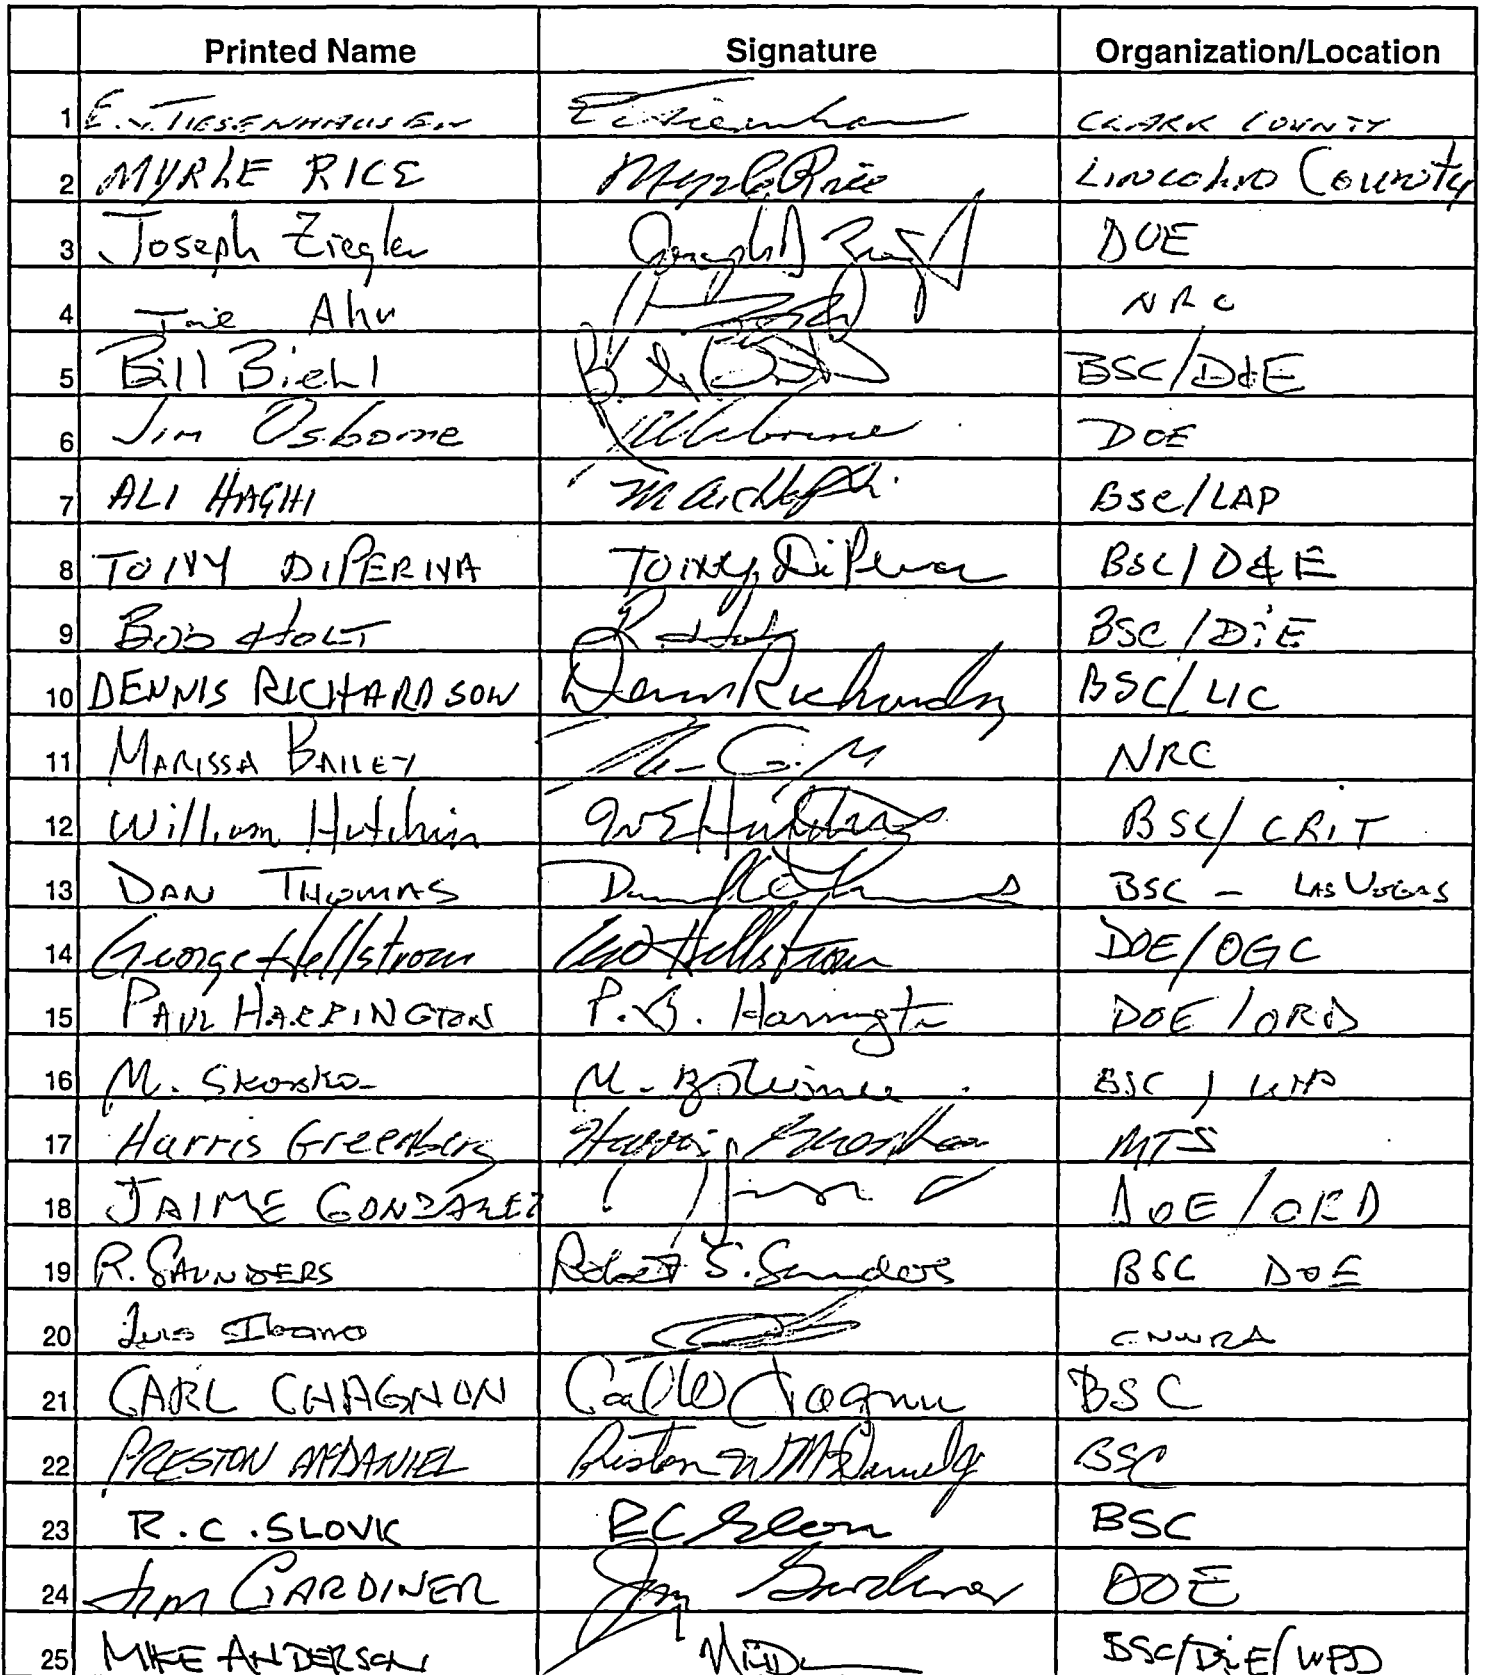 Printed Name Signature Organization/Location
1 E. v. TIESENHAUSEN CLARK COUNTY
2 MYRLE RICE Myrle Rice LINCOLN County
3 Joseph Ziegler Joseph D Ziegler DOE
4 Tae Ahn NRC
5 Bill Biehl BSC/D&E
6 Jim Osborne Osborne DOE
7 ALI HAGHI BSC/LAP
8 TONY DIPERNA Tony DiPerna BSC/D&E
9 BOB HOLT R Holt BSC/D&E
10 DENNIS RICHARDSON Dennis Richardson BSC/LIC
11 MARISSA BAILEY NRC
12 William Hutchins Hutchins BSC/CRIT
13 DAN THOMAS BSC - LAS VEGAS
14 George Hellstrom Hellstrom DOE/OGC
15 PAUL HARRINGTON P. G. Harrington DOE/ORD
16 M. M. BSC /
17 Harris Greenberg Harris Greenberg MTS
18 JAIME GONZALEZ DOE/ORD
19 R. SAUNDERS Robert S. Saunders BSC DOE
20 Luis Ibarra CNWRA
21 CARL CHAGNON Carl W Chagnon BSC
22 PRESTON McDANIEL Preston W McDaniel Jr BSC
23 R.C. SLOVK RC BSC
24 Jim GARDINER Jim Gardiner DOE
25 MIKE ANDERSON BSC/D&E/WPD